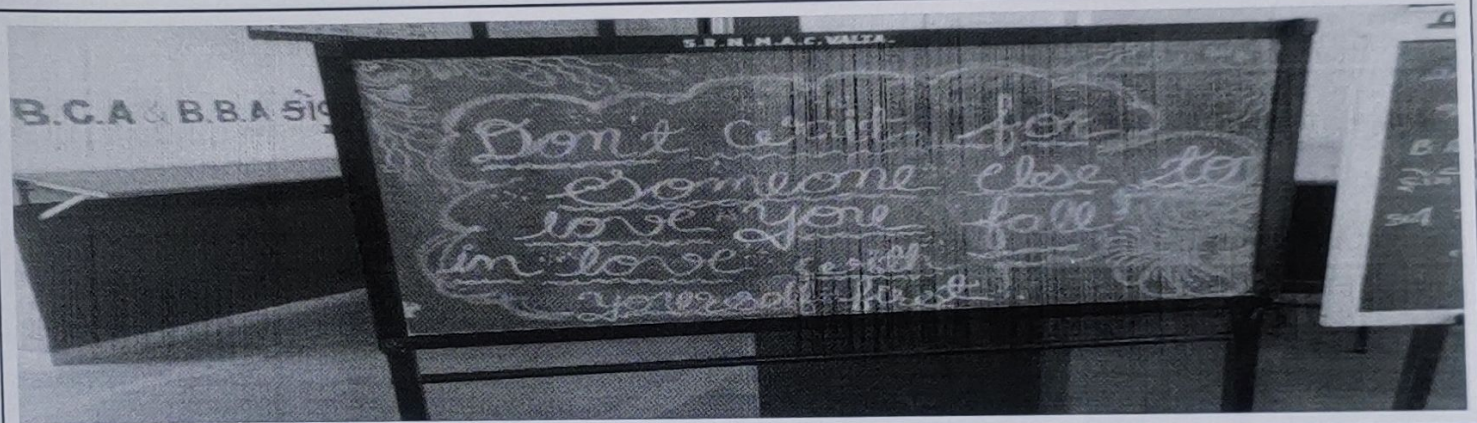 S.R.N.M.A.C. VALTA.
B.C.A & B.B.A
Don't wait for
Someone else to
love you fall
in love with
yourself first.